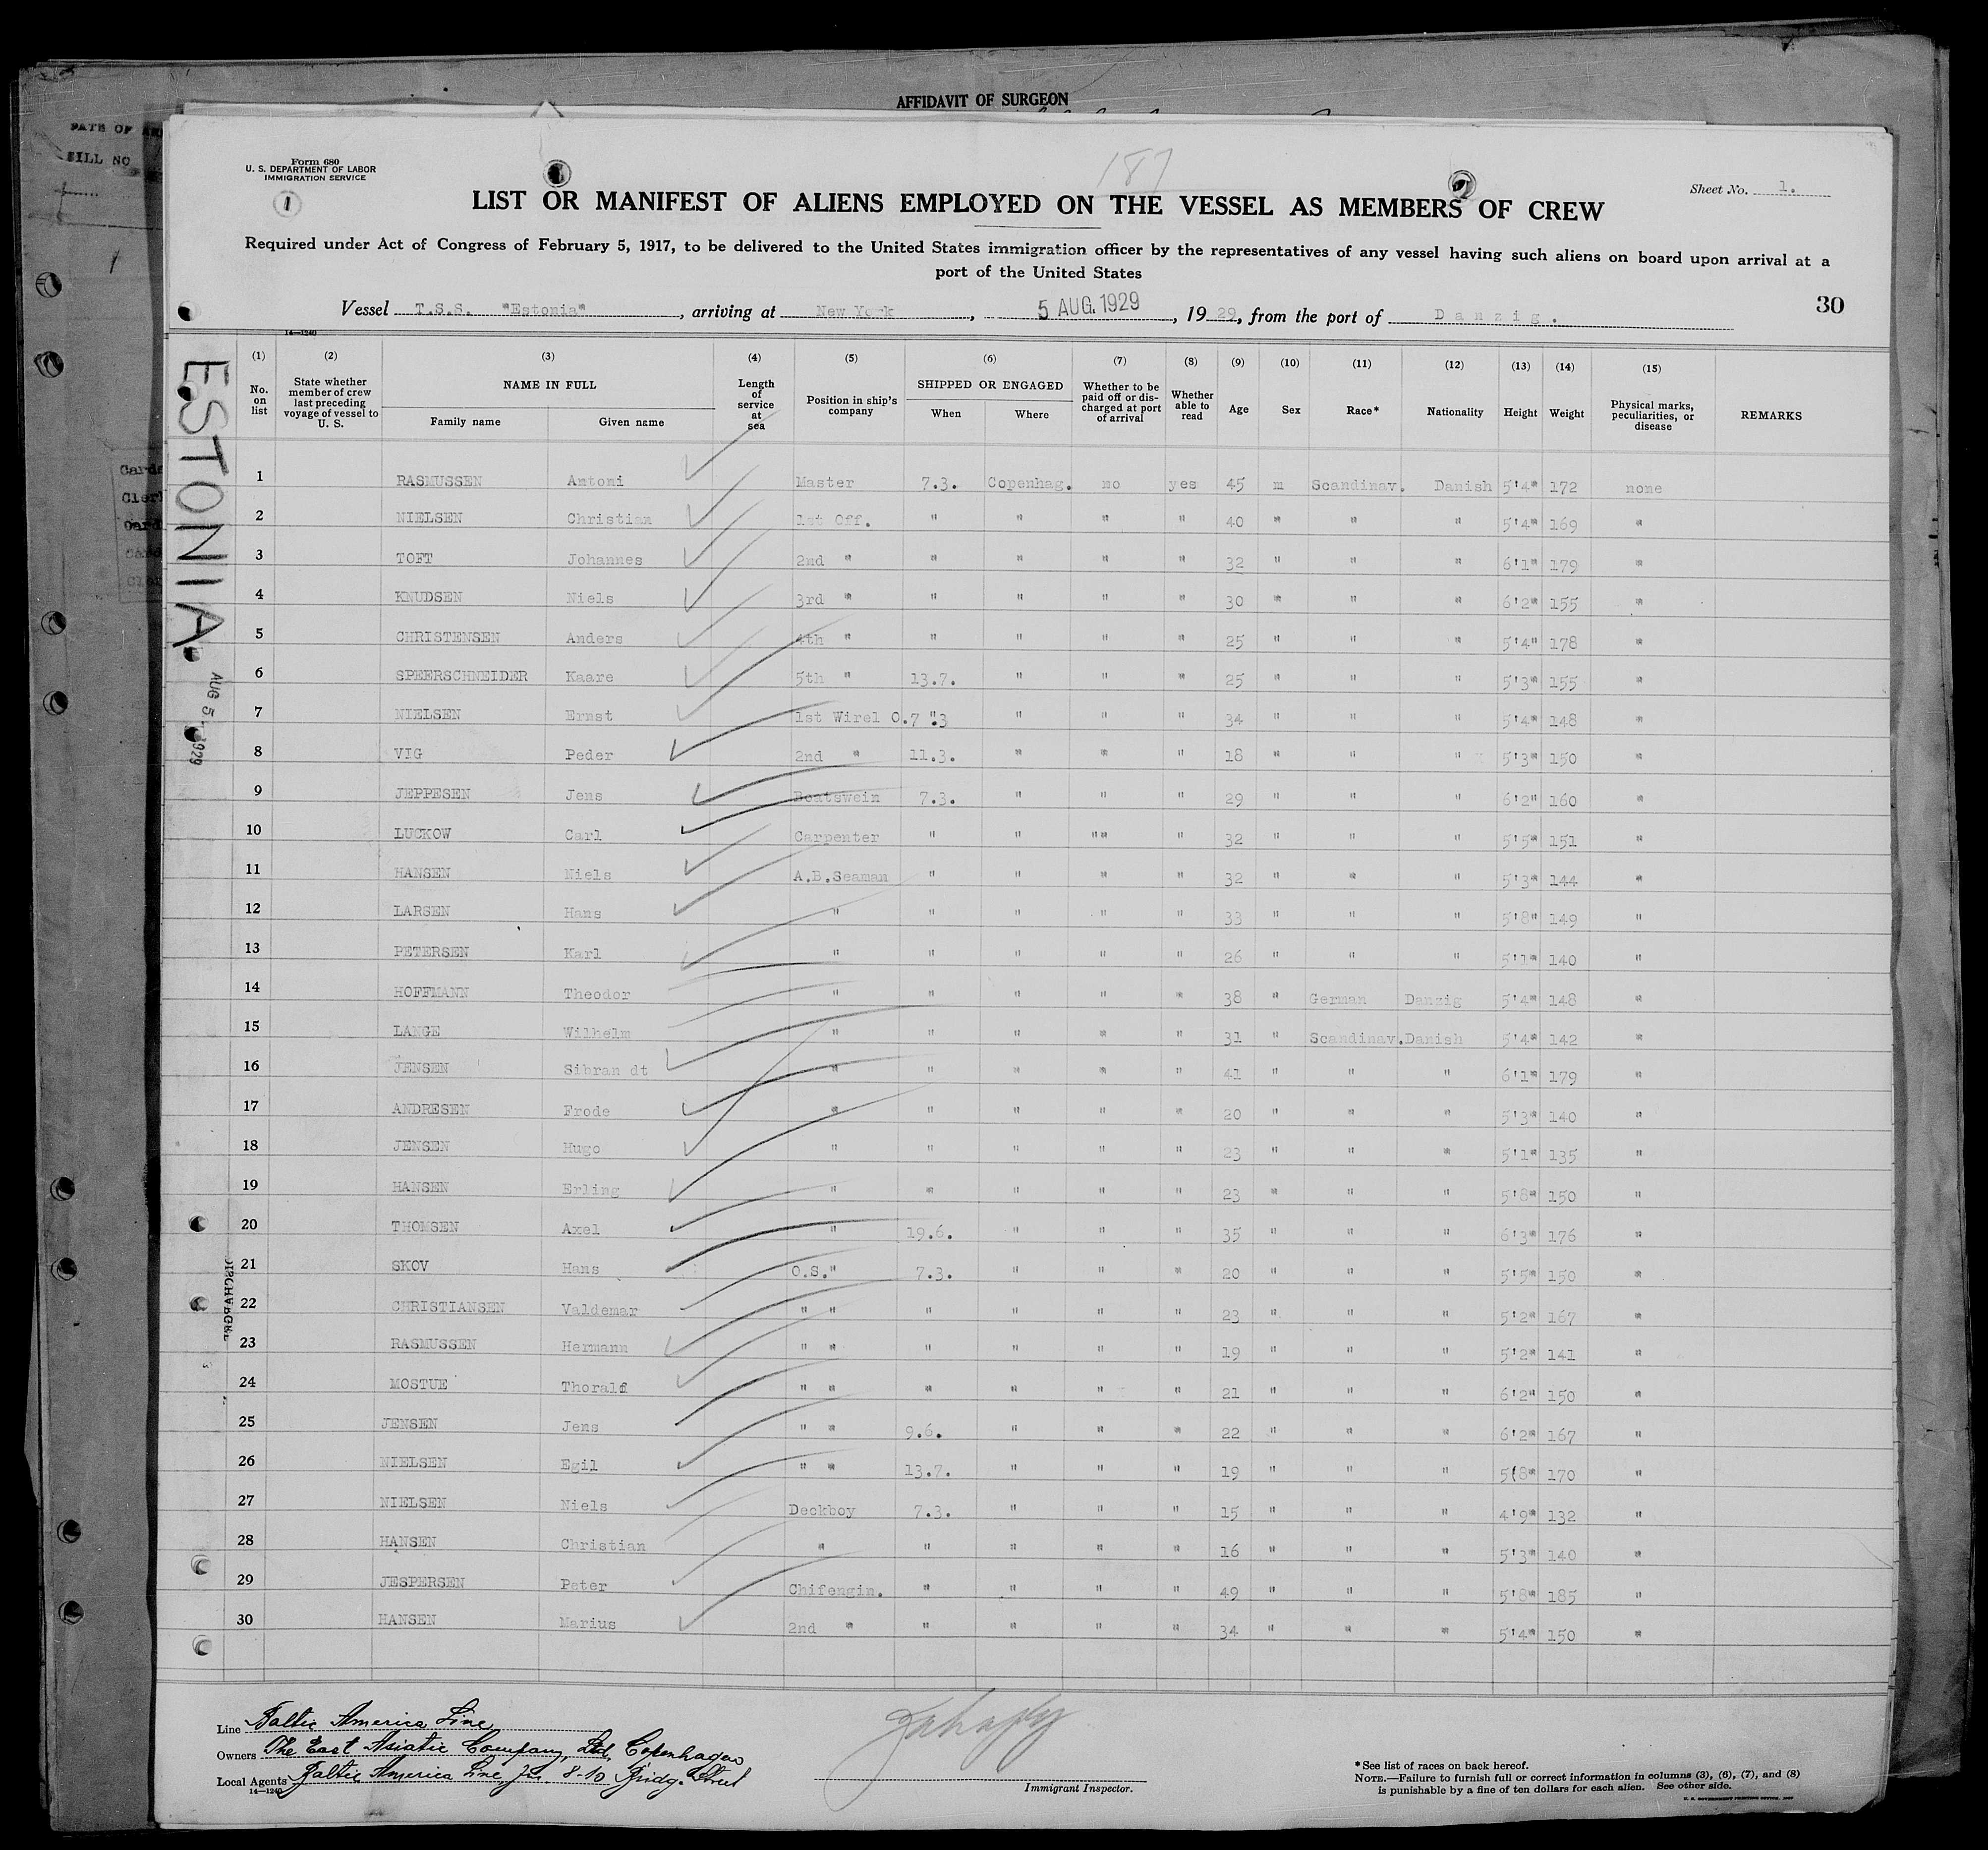 AFFIDAVIT OF SURGEON
DATE OF
BILL NO
Form 680
U. S. DEPARTMENT OF LABOR
IMMIGRATION SERVICE
1
187
Sheet No. 1.
LIST OR MANIFEST OF ALIENS EMPLOYED ON THE VESSEL AS MEMBERS OF CREW
Required under Act of Congress of February 5, 1917, to be delivered to the United States immigration officer by the representatives of any vessel having such aliens on board upon arrival at a
port of the United States
Vessel T.S.S. "Estonia", arriving at New York, 5 AUG. 1929, 19 29, from the port of Danzig.
30
14—1240
ESTONIA.
AUG 5 1929
(1) (2) (3) (4) (5) (6) (7) (8) (9) (10) (11) (12) (13) (14) (15)
No. on list | State whether member of crew last preceding voyage of vessel to U. S. | NAME IN FULL Family name Given name | Length of service at sea | Position in ship's company | SHIPPED OR ENGAGED When Where | Whether to be paid off or discharged at port of arrival | Whether able to read | Age | Sex | Race* | Nationality | Height | Weight | Physical marks, peculiarities, or disease | REMARKS
1 RASMUSSEN Antoni Master 7.3. Copenhag. no yes 45 m Scandinav. Danish 5'4" 172 none
2 NIELSEN Christian 1st Off. " " " " 40 " " " 5'4" 169 "
3 TOFT Johannes 2nd " " " " " 32 " " " 6'1" 179 "
4 KNUDSEN Niels 3rd " " " " " 30 " " " 6'2" 155 "
5 CHRISTENSEN Anders 4th " " " " " 25 " " " 5'4" 178 "
6 SPEERSCHNEIDER Kaare 5th " 13.7. " " " 25 " " " 5'3" 155 "
7 NIELSEN Ernst 1st Wirel O. 7".3 " " " 34 " " " 5'4" 148 "
8 VIG Peder 2nd " 11.3. " " " 18 " " " 5'3" 150 "
9 JEPPESEN Jens Boatswein 7.3. " " " 29 " " " 6'2" 160 "
10 LUCKOW Carl Carpenter " " "" " 32 " " " 5'5" 151 "
11 HANSEN Niels A.B.Seaman " " " " 32 " " " 5'3" 144 "
12 LARSEN Hans " " " " " 33 " " " 5'8" 149 "
13 PETERSEN Karl " " " " " 26 " " " 5'1" 140 "
14 HOFFMANN Theodor " " " " " 38 " German Danzig 5'4" 148 "
15 LANGE Wilhelm " " " " " 31 " Scandinav. Danish 5'4" 142 "
16 JENSEN Sibran dt " " " " " 41 " " " 6'1" 179 "
17 ANDRESEN Frode " " " " " 20 " " " 5'3" 140 "
18 JENSEN Hugo " " " " " 23 " " " 5'1" 135 "
19 HANSEN Erling " " " " " 23 " " " 5'8" 150 "
20 THOMSEN Axel " 19.6. " " " 35 " " " 6'3" 176 "
21 SKOV Hans O.S." 7.3. " " " 20 " " " 5'5" 150 "
22 CHRISTIANSEN Valdemar " " " " " " 23 " " " 5'2" 167 "
23 RASMUSSEN Hermann " " " " " " 19 " " " 5'2" 141 "
24 MOSTUE Thoralf " " " " " " 21 " " " 6'2" 150 "
25 JENSEN Jens " " 9.6. " " " 22 " " " 6'2" 167 "
26 NIELSEN Egil " " 13.7. " " " 19 " " " 5'8" 170 "
27 NIELSEN Niels Deckboy 7.3. " " " 15 " " " 4'9" 132 "
28 HANSEN Christian " " " " " 16 " " " 5'3" 140 "
29 JESPERSEN Peter Chifengin. " " " " 49 " " " 5'8" 185 "
30 HANSEN Marius 2nd " " " " " 34 " " " 5'4" 150 "
Line Baltic America Line
Owners The East Asiatic Company, Ltd, Copenhagen
Local Agents Baltic America Line, Inc. 8-10 Bridge Street
14—1240
Immigrant Inspector.
*See list of races on back hereof.
NOTE.—Failure to furnish full or correct information in columns (3), (6), (7), and (8)
is punishable by a fine of ten dollars for each alien. See other side.